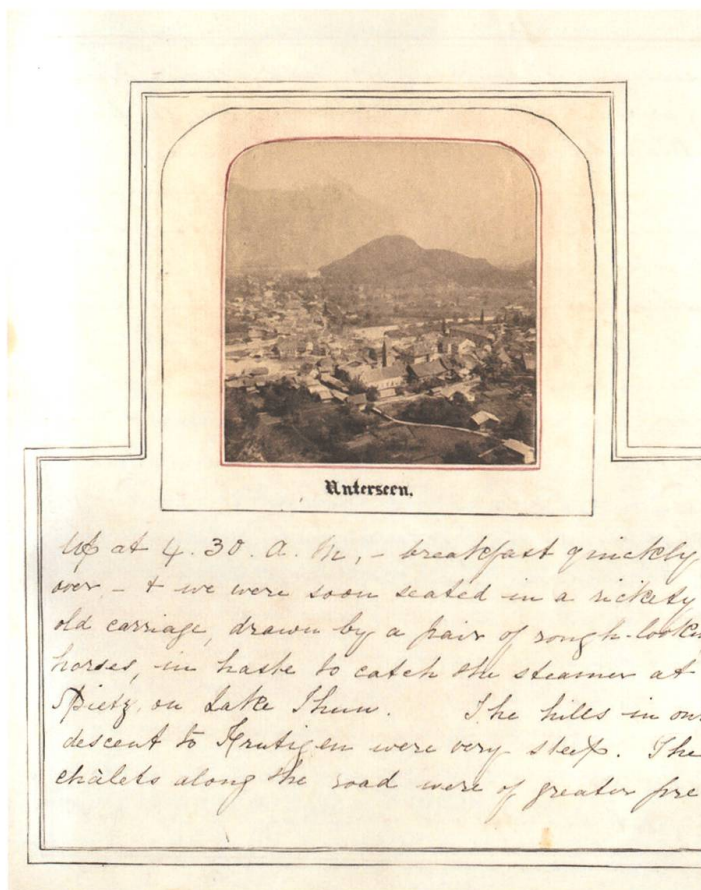 Unterseen.
Up at 4.30. a. m, - breakfast quickly
over, - & we were soon seated in a rickety
old carriage, drawn by a pair of rough-lookin
horses, in haste to catch the steamer at
Spietz, on Lake Thun. The hills in our
descent to Frutigen were very steep. The
châlets along the road were of greater pre